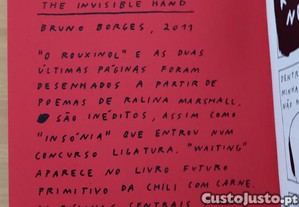 THE INVISIBLE HAND
BRUNO BORGES, 2011
"O ROUXINOL" E AS DUAS
ÚLTIMAS PÁGINAS FORAM
DESENHADOS A PARTIR DE
POEMAS DE RALINA MARSHALL.
SÃO INÉDITOS, ASSIM COMO
"INSÓNIA" QUE ENTROU NUM
CONCURSO LIGATURA. "WAITING"
APARECE NO LIVRO FUTURO
PRIMITIVO DA CHILI COM CARNE.
CENTRAIS
DENTR
MINHA
NÃO
CustoJusto.pt